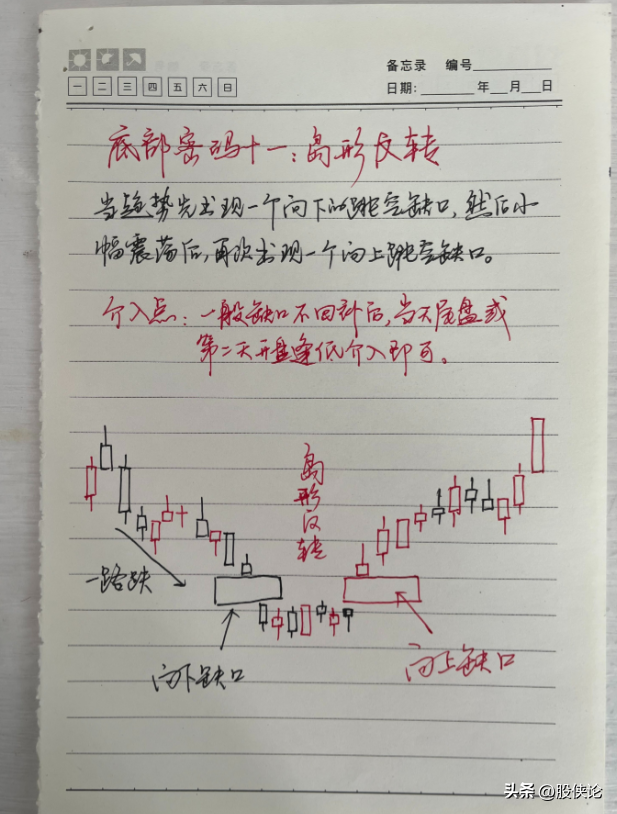 备忘录 编号
一 二 三 四 五 六 日
日期: 年 月 日
底部密码十一:岛形反转
当趋势先出现一个向下的跳空缺口,然后小
幅震荡后,再次出现一个向上跳空缺口。
介入点:一般缺口不回补后,当天尾盘或
第二天开盘逢低介入即可。
岛形反转
一路跌
向下缺口
向上缺口
头条 @股侠论